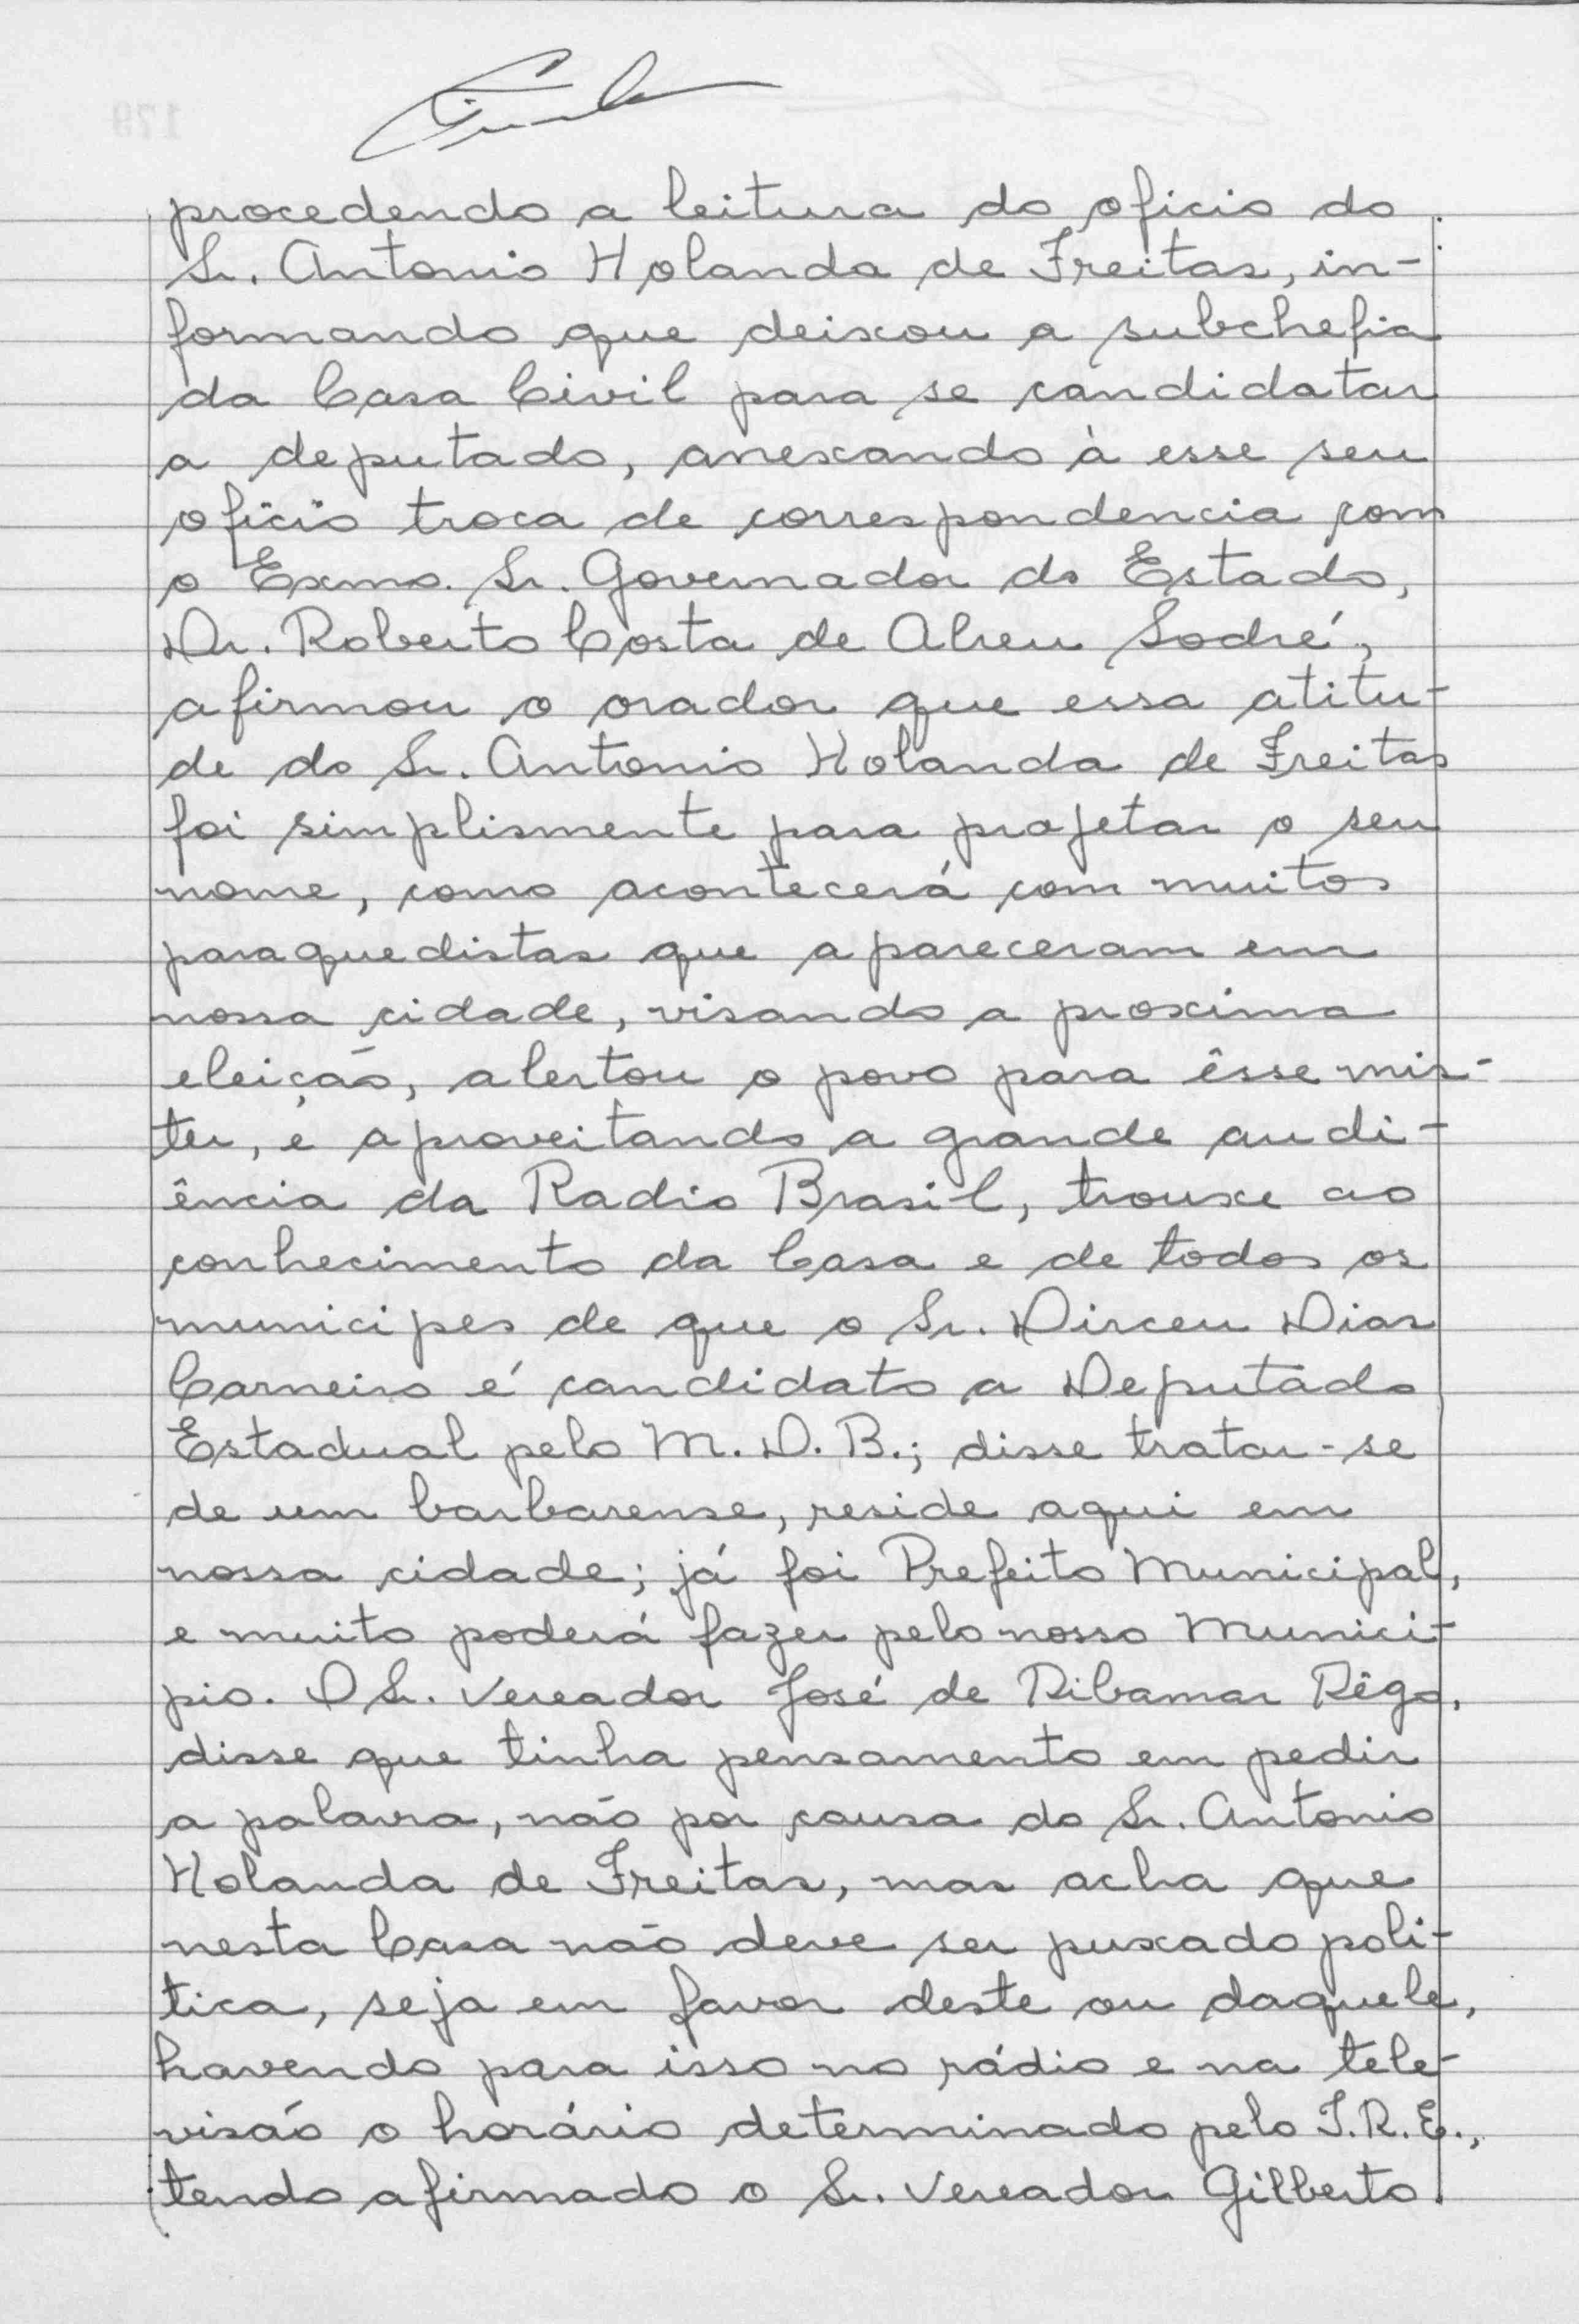 procedendo a leitura do oficio do
Sr. Antonio Holanda de Freitas, in-
formando que deixou a subchefia
da Casa Civil para se candidatar
a deputado, anexando à esse seu
oficio troca de correspondencia com
o Exmo. Sr. Governador do Estado,
Dr. Roberto Costa de Abreu Sodré,
afirmou o orador que essa atitu-
de do Sr. Antonio Holanda de Freitas
foi simplismente para projetar o seu
nome, como acontecerá com muitos
paraquedistas que apareceram em
nossa cidade, visando a proxima
eleição, alertou o povo para êsse mis-
ter, e aproveitando a grande audi-
ência da Radio Brasil, trouxe ao
conhecimento da Casa e de todos os
municipes de que o Sr. Dirceu Dias
Carneiro é candidato a Deputado
Estadual pelo M.D.B.; disse tratar-se
de um barbarense, reside aqui em
nossa cidade; já foi Prefeito Municipal,
e muito poderá fazer pelo nosso Munici-
pio. O Sr. Vereador José de Ribamar Rêgo,
disse que tinha pensamento em pedir
a palavra, não por causa do Sr. Antonio
Holanda de Freitas, mas acha que
nesta Casa não deve ser puxado poli-
tica, seja em favor deste ou daquele,
havendo para isso no rádio e na tele-
visão o horário determinado pelo T.R.E.,
tendo afirmado o Sr. Vereador Gilberto